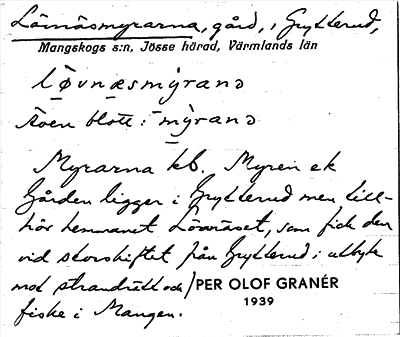 Lövnäsmyrarna, gård, i Grytterud,
Mangskogs s:n, Jösse härad, Värmlands län
løvnæsmỳranə
Även blott: mỳranə
Myrarna kb. Myren ek
Gården ligger i Grytterud men till-
hör hemmanet Lövnäset, som fick den
vid storskiftet från Grytterud i utbyte
mot strandrätt och
fiske i Mangen.
PER OLOF GRANÉR
1939